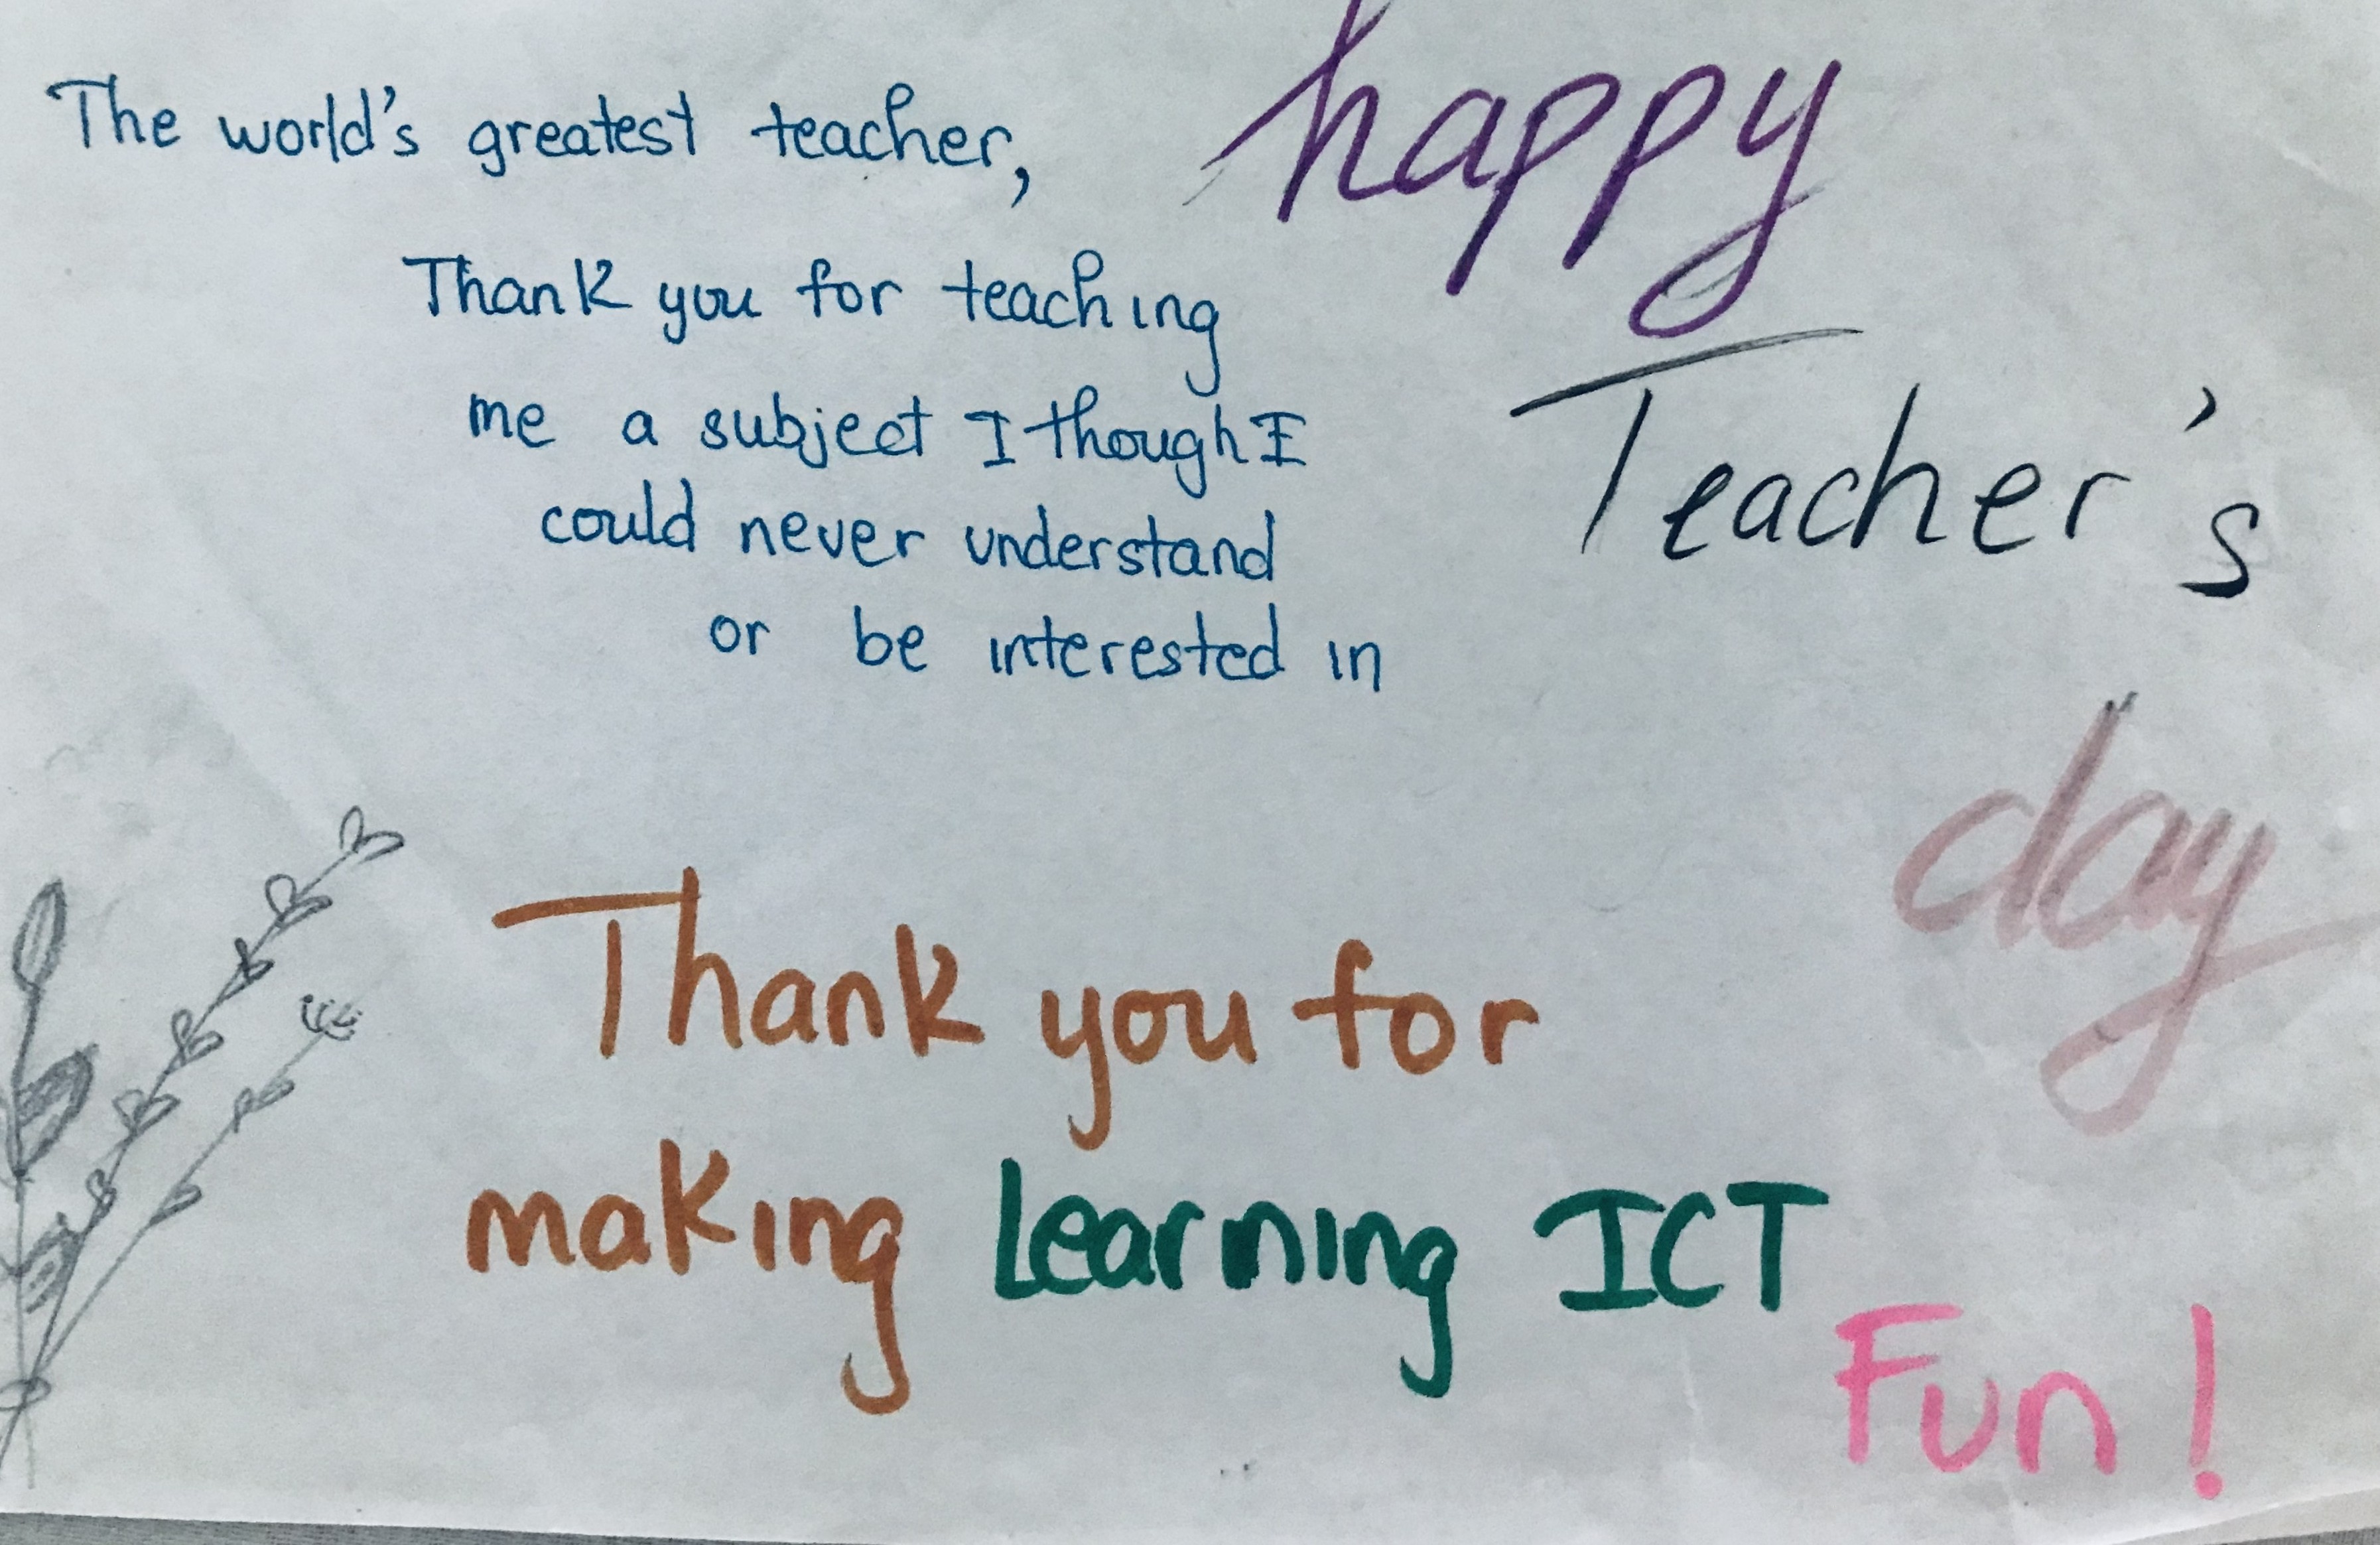 The world's greatest teacher,
Thank you for teaching
me a subject I though I
could never understand
or be interested in
happy
Teacher's
day
Thank you for
making Learning ICT
Fun!